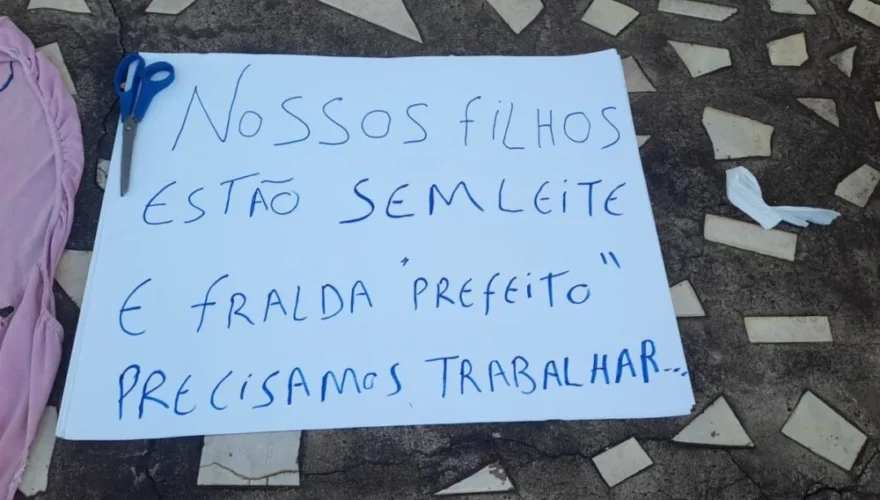 NOSSOS FILHOS
ESTÃO SEM LEITE
E FRALDA "PREFEITO"
PRECISAMOS TRABALHAR...